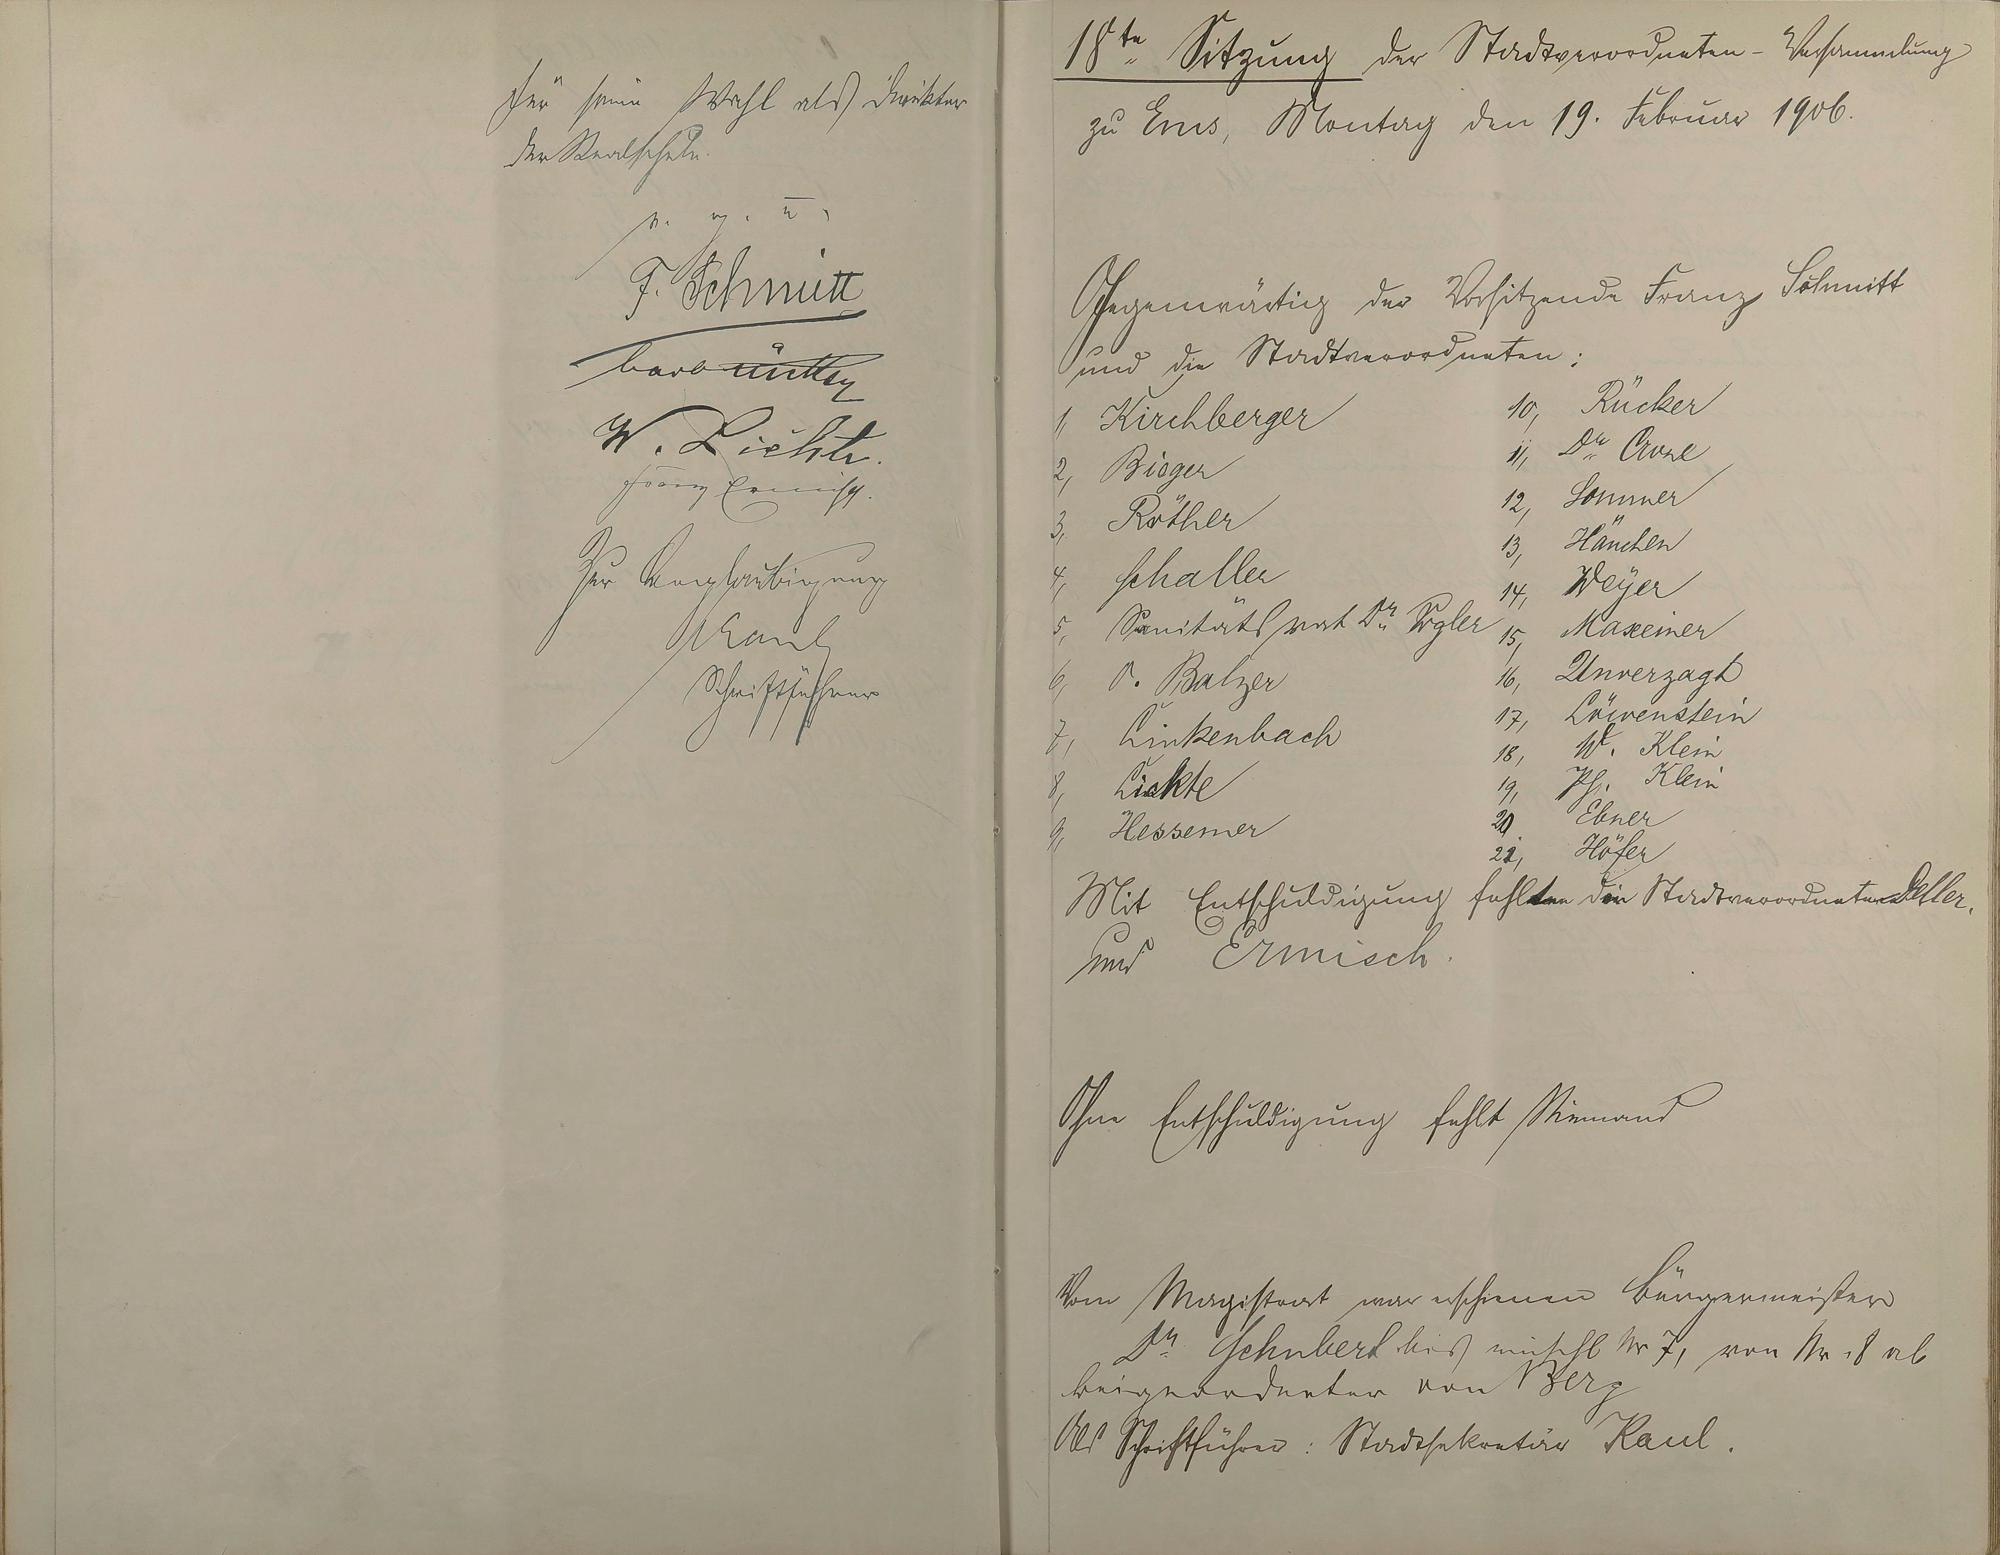 für seine Wahl als Direktor
der Realschule.
v. g. u.
F. Schmitt
W. Lichte.
Franz Ermisch.
Zur Beglaubigung
Kaul
Schriftführer
18te Sitzung der Stadtverordneten-Versammlung
zu Ems, Montag den 19. Februar 1906.
Gegenwärtig der Vorsitzende Franz Schmitt
und die Stadtverordneten:
1, Kirchberger
2, Bieger
3, Röther
4, Schaller
5, Sanitätsrat Dr. Vogler
6, O. Balzer
7, Linkenbach
8, Lickte
9, Hessemer
10, Rücker
11, Dr. Crone
12, Sommer
13, Hänchen
14, Weyer
15, Maxeiner
16, Unverzagt
17, Löwenstein
18, W. Klein
19, Ph. Klein
20 Ebner
21, Höfer
Mit Entschuldigung fehlten die Stadtverordneten Deller,
und Ermisch.
Ohne Entschuldigung fehlt Niemand
Vom Magistrat war erschienen Bürgermeister
Dr. Schubert bis einschl Nr 7, von Nr. 8 ab
Beigeordneter von Berg
Als Schriftführer: Stadtsekretär Kaul.